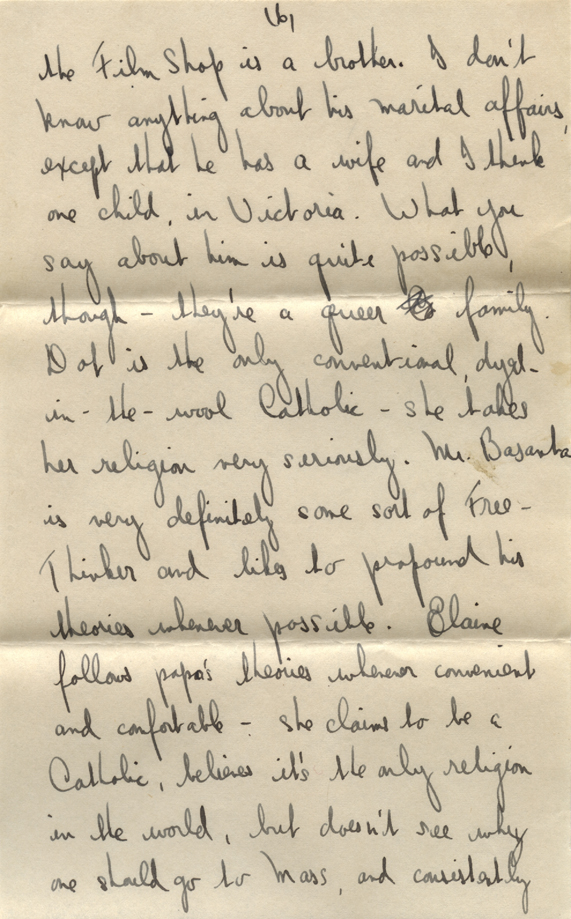 (6)
the Film Shop is a brother. I don't
know anything about his marital affairs,
except that he has a wife and I think
one child, in Victoria. What you
say about him is quite possible,
though - they're a queer family.
Dot is the only conventional, dyed-
in-the-wool Catholic - she takes
her religion very seriously. Mr. Basanta
is very definitely some sort of Free-
Thinker and likes to profound his
theories whenever possible. Elaine
follows papa's theories whenever convenient
and comfortable - she claims to be a
Catholic, believes it's the only religion
in the world, but doesn't see why
one should go to Mass, and consistently